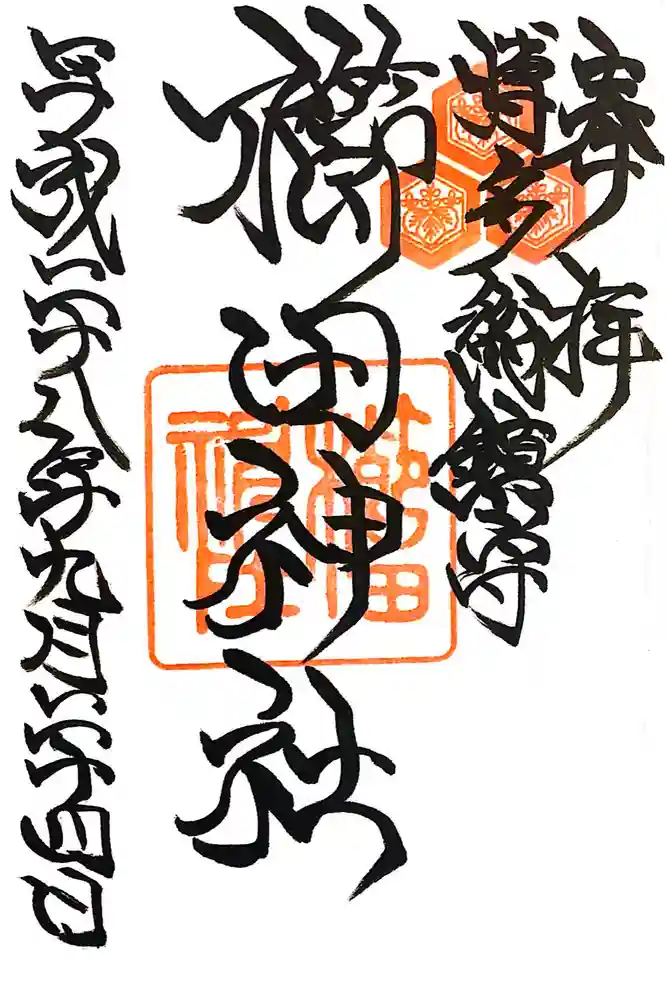 奉拝
博多総鎮守
櫛田神社
櫛田神社
平成二十八年九月二十四日